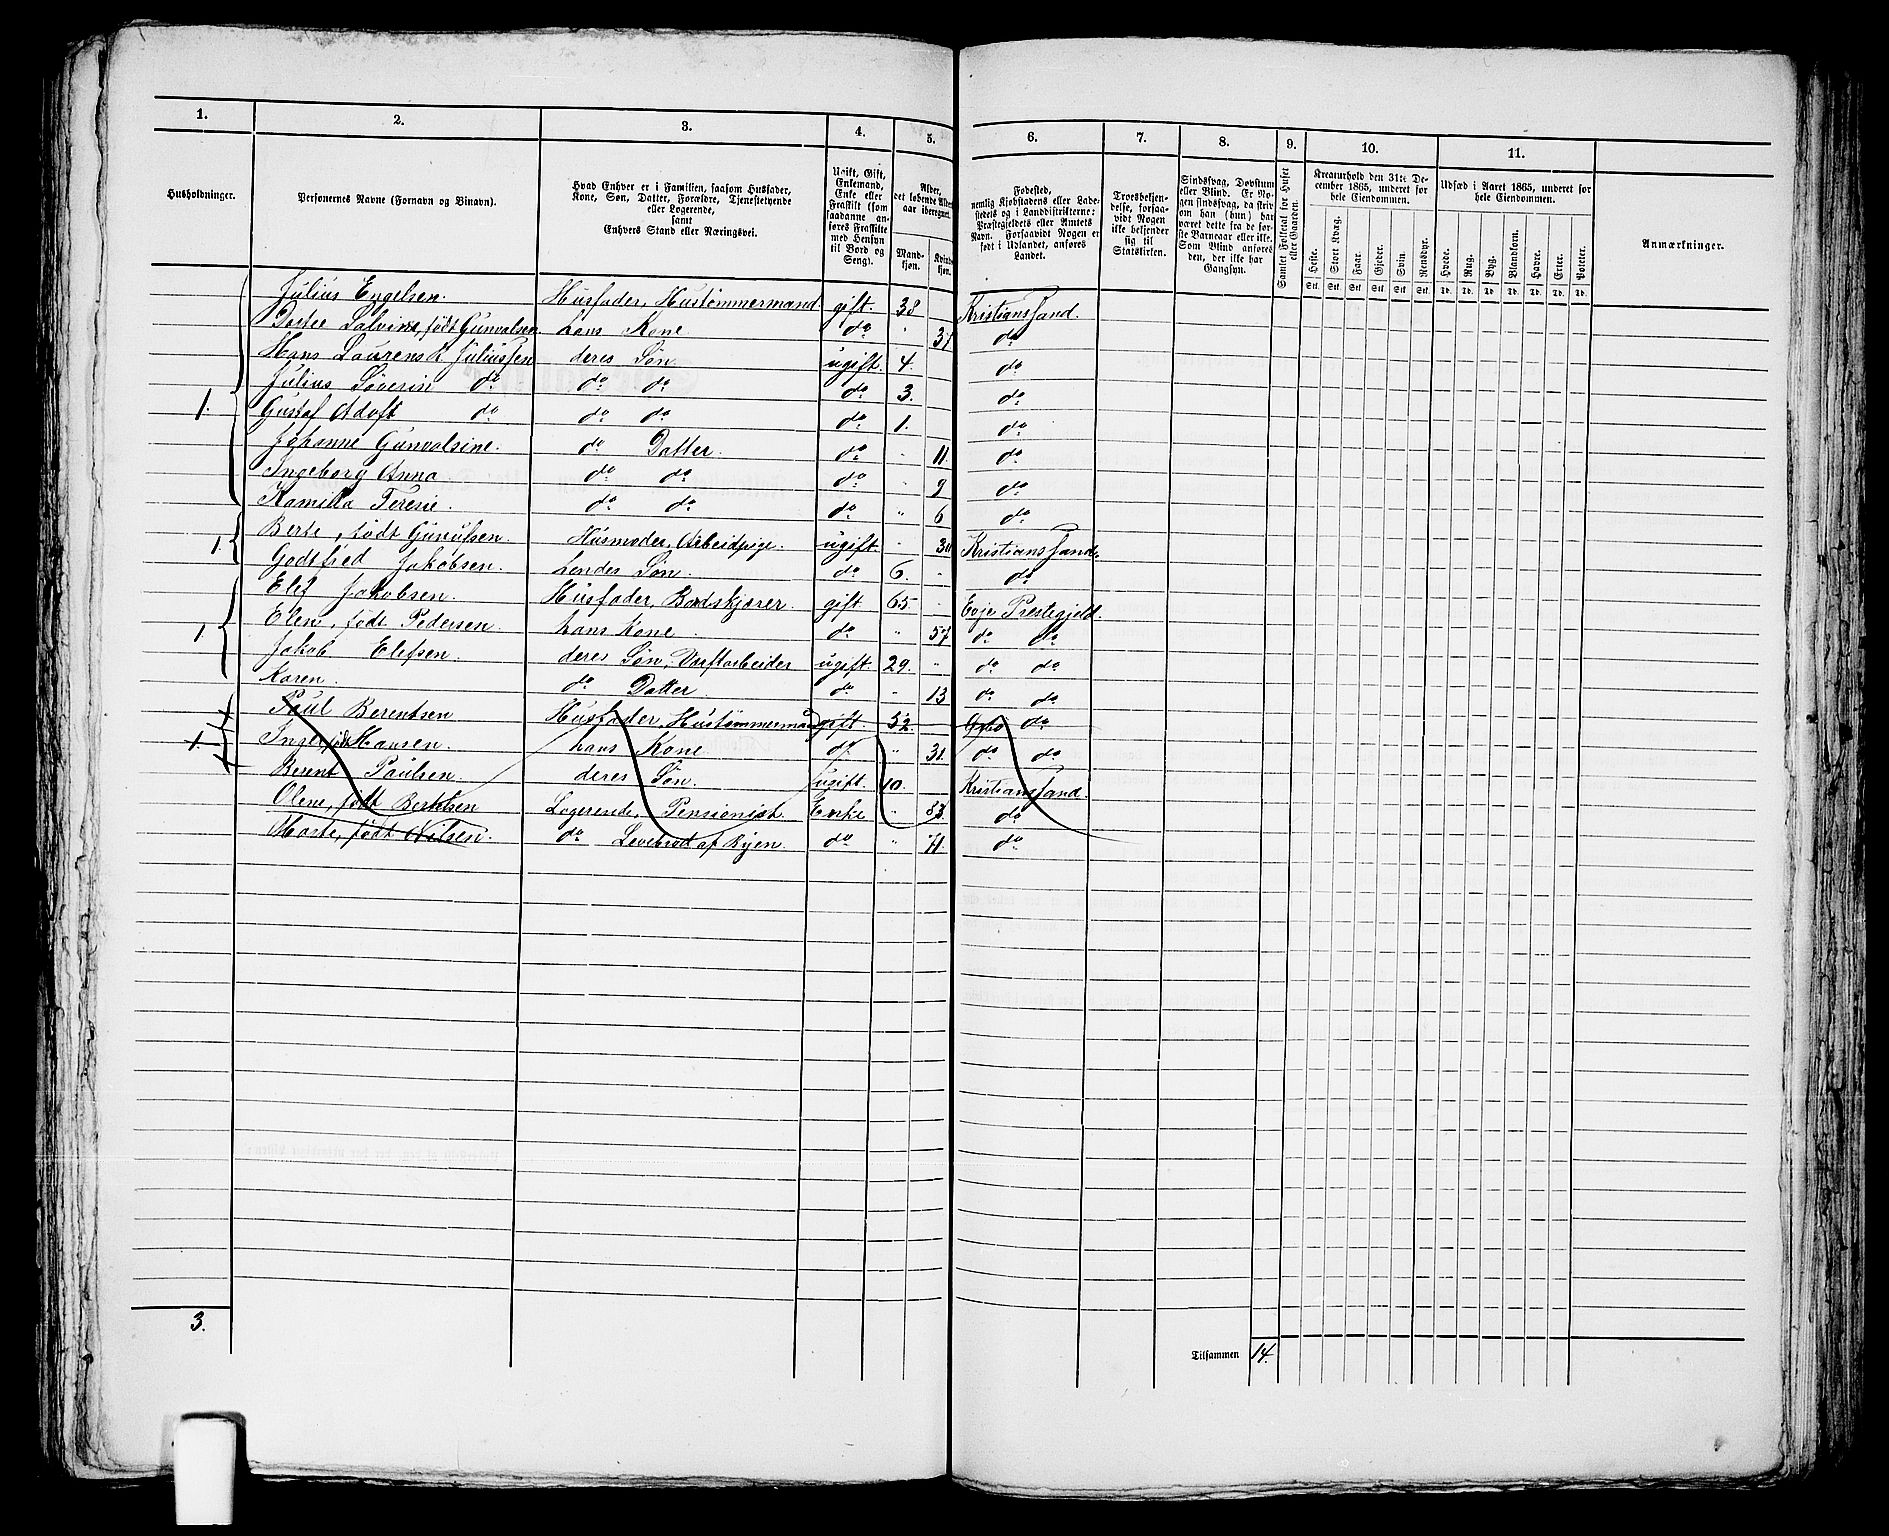 1. 2. 3. 4. 5. 6. 7. 8. 9. 10. 11.
Husholdninger.
Personernes Navne (Fornavn og Binavn).
Hvad Enhver er i Familien, saasom Husfader, Kone, Søn, Datter, Forældre, Tjenestetyende eller Logerende, samt Enhvers Stand eller Næringsvei.
Ugift, Gift, Enkemand, Enke eller Fraskilt (som saadanne anføres Fraskilte med Hensyn til Bord og Seng).
Alder, det løbende Alders aar iberegnet.
Mandkjøn. Kvindekjøn.
Fødested, nemlig Kjøbstadens eller Ladestedets og i Landdistrikterne: Præstegjeldets eller Amtets Navn. Forsaavidt Nogen er født i Udlandet, anføres Landet.
Troesbekjendelse, forsaavidt Nogen ikke bekjender sig til Statskirken.
Sindssvag, Døvstum eller Blind. Er Nogen sindssvag, da skrives om han (hun) har været dette fra de første Barneaar eller ikke. Som Blind anføres den, der ikke har Gangsyn.
Samlet Folketal for Huset eller Gaarden.
Kreaturhold den 31te December 1865, underet for hele Eiendommen.
Heste. Stort Kvæg. Faar. Gjeder. Svin. Rensdyr.
Udsæd i Aaret 1865, underet for hele Eiendommen.
Hvede. Rug. Byg. Blandkorn. Havre. Erter. Poteter.
Anmærkninger.
Julius Engelsen. Husfader, Hustømmermand. gift. 38 Kristianssand.
Dorte Salvine, født Gunvalsen hans Kone do " 37 do
Hans Laurens K Juliussen deres Søn. ugift. 4. do
Julius Søverin do do do do 3. do
1. Gustaf Adolf do do do do 1. do
Johanne Gunvalsine. do Datter. do " 11. do
Ingeborg Anna do do do " 9 do
Kamilla Teresie. do do do " 6 do
1. Berte, født Gunulsen. Husmoder, Arbeidpige. ugift " 30 Kristianssand.
Godtfred Jakobsen. hendes Søn. do 6. " do
Elef Jakobsen. Husfader, Bordskjører. gift 65. " Evje Prestegjeld.
1. Elene, født Pedersen hans Kone do " 57 do do
Jakob Elefsen. deres Søn, Værftarbeider ugift. 29. " do do
Karen. do Datter. do " 13 do do
Paul Berentsen Husfader, Hustømmermand gift 52. do
1. Inge født Hansen. hans Kone. do " 31. do do
Berent Paulsen. deres Søn. ugift. 10. Kristianssand.
Olene, født Berntsen Logerende, Pensionist Enke " 83. do
Marte, født Nilsen do Levebrød af Byen. do " 71. do
3.
Tilsammen 14.